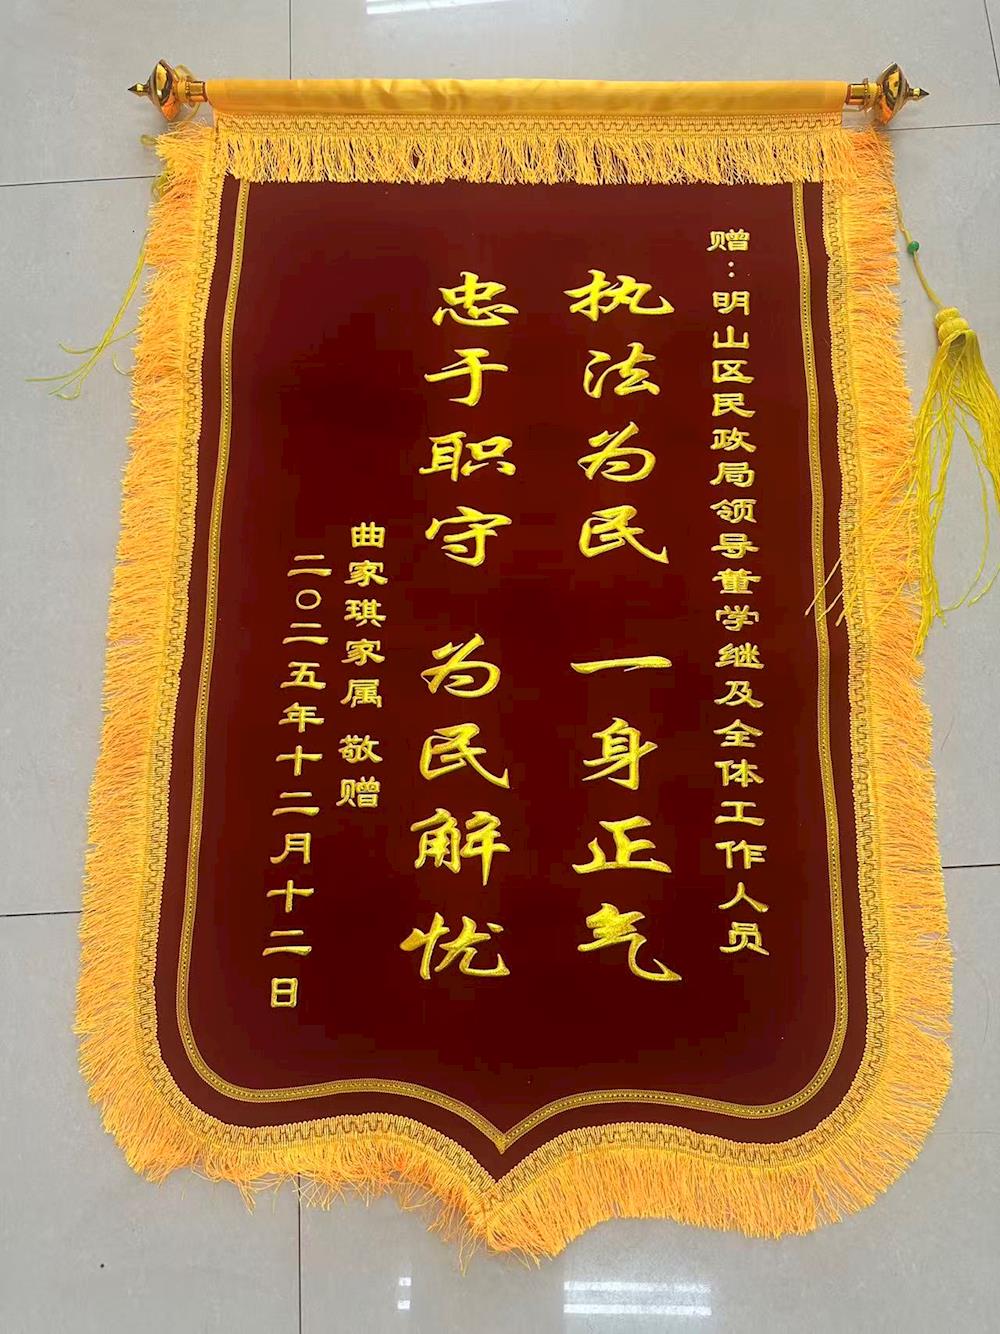 赠：明山区民政局领导董学继及全体工作人员
执法为民 一身正气
忠于职守 为民解忧
曲家琪家属 敬赠
二〇二五年十二月十二日